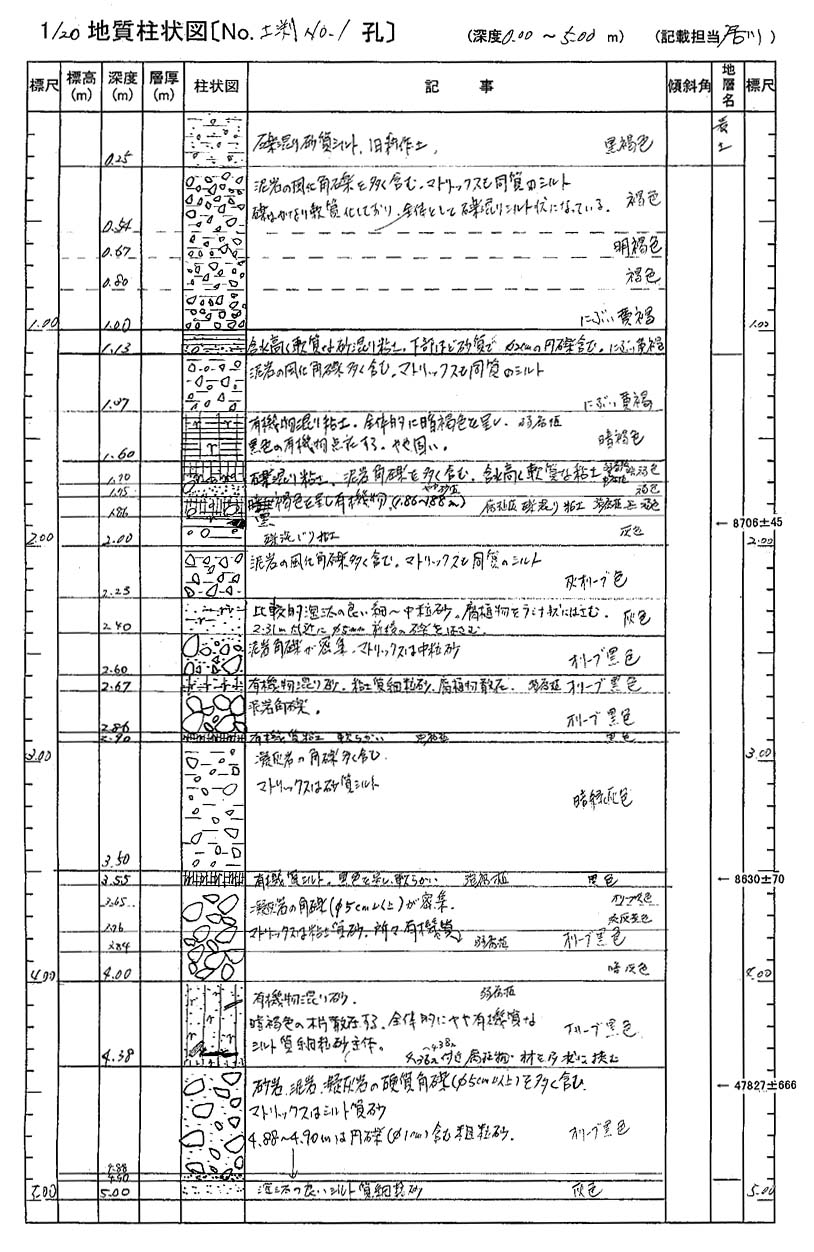 1/20 地質柱状図〔No. 土判 NO.1 孔〕 (深度0.00 ～ 5.00 m) (記載担当
標尺 標高(m) 深度(m) 層厚(m) 柱状図 記 事 傾斜角 地層名 標尺
礫混り砂質シルト、旧耕作土。 黒褐色 表土
0.25
泥岩の風化角礫を多く含む。マトリックスも同質のシルト
礫はかなり軟質化しており、全体として礫混りシルト状になっている。 褐色
0.54
明褐色
0.67
褐色
0.80
にぶい黄褐
1.00 1.00 1.00
含水高く軟質な砂混り粘土。下部ほど砂質で φ2cmの円礫含む。にぶい黄褐
1.13
泥岩の風化角礫多く含む。マトリックスも同質のシルト
にぶい黄褐
1.37
有機物混り粘土。全体的に暗褐色を呈し、弱腐植
黒色の有機物点在する。やや固い。 暗褐色
1.60
礫混り粘土。泥岩角礫を多く含む。含水高く軟質な粘土
1.70
褐色
1.75
褐色を呈し有機物 (1.86～1.88m) 腐植質 砂混り粘土
1.86
← 8706±45
砂混じり粘土 灰色
2.00 2.00 2.00
泥岩の風化角礫多く含む。マトリックスも同質のシルト
灰オリーブ色
2.25
比較的淘汰の良い細～中粒砂。腐植物をラミナ状にはさむ。 灰色
2.31m付近に φ5mm 前後の礫をはさむ。
2.40
泥岩角礫が密集。マトリックスは中粒砂
オリーブ黒色
2.60
有機物混り砂。粘土質細粒砂、腐植物散在。 弱腐植 オリーブ黒色
2.67
泥岩角礫。
オリーブ黒色
2.86
有機質粘土 軟らかい 黒色
2.90
3.00 3.00
凝灰岩の角礫多く含む
マトリックスは砂質シルト
暗緑灰色
3.50
有機質シルト。黒色を呈し軟らかい 強腐植 黒色
3.55
← 8630±70
凝灰岩の角礫(φ5cm以上)が密集。
3.65
マトリックスは粘土質砂、所々有機質 弱腐植 オリーブ黒色
3.76
3.84
暗灰色
4.00 4.00 4.00
有機物混り砂。 弱腐植
暗褐色の木片散在する。全体的にやや有機質な
シルト質細粒砂主体。 オリーブ黒色
4.36 ～4.38m 付近 腐植物・材を層状に挟む
4.38
← 47827±666
砂岩、泥岩、凝灰岩の硬質角礫(φ5cm以上)を多く含む
マトリックスはシルト質砂
4.88～4.90mは円礫(φ1cm)含む粗粒砂。 オリーブ黒色
4.88
4.90
淘汰の良いシルト質細粒砂 灰色
5.00 5.00 5.00